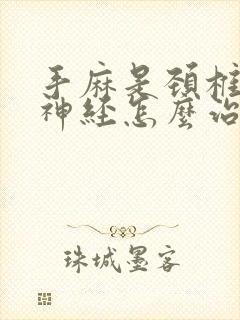 手麻是頚椎
神経怎麼治
珠城墨客